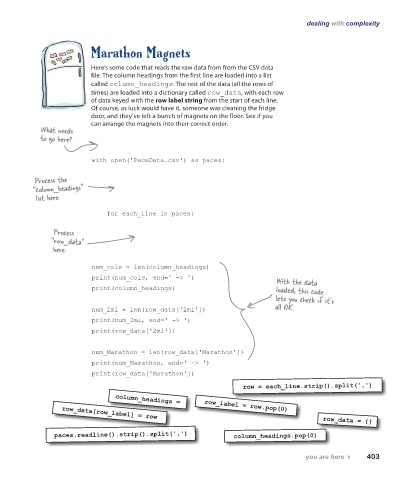 dealing with complexity
Marathon Magnets
Here's some code that reads the raw data from from the CSV data
file. The column headings from the first line are loaded into a list
called column_headings. The rest of the data (all the rows of
times) are loaded into a dictionary called row_data, with each row
of data keyed with the row label string from the start of each line.
Of course, as luck would have it, someone was cleaning the fridge
door, and they've left a bunch of magnets on the floor. See if you
can arrange the magnets into their correct order.
What needs
to go here?
with open('PaceData.csv') as paces:
Process the
"column_headings"
list here
for each_line in paces:
Process
"row_data"
here
num_cols = len(column_headings)
print(num_cols, end=' -> ')
print(column_headings)
With the data
loaded, this code
lets you check if it's
all OK.
num_2mi = len(row_data['2mi'])
print(num_2mi, end=' -> ')
print(row_data['2mi'])
num_Marathon = len(row_data['Marathon'])
print(num_Marathon, end=' -> ')
print(row_data['Marathon'])
row = each_line.strip().split(',')
column_headings =
row_label = row.pop(0)
row_data[row_label] = row
row_data = {}
paces.readline().strip().split(',')
column_headings.pop(0)
you are here 403